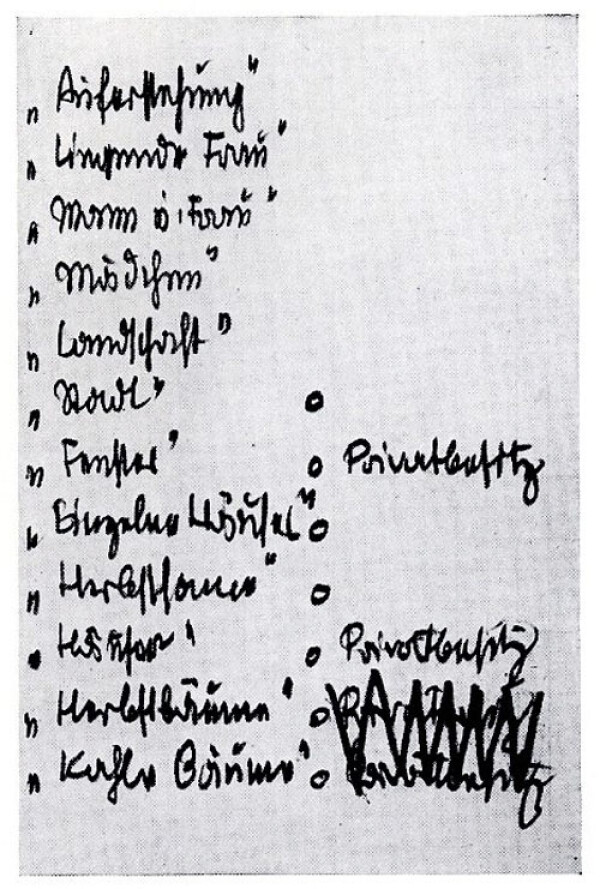 „Auferstehung"
„Liegende Frau"
„Mann ü. Frau"
„Mädchen"
„Landschaft"
„Stadt"
„Fenster" Privatbesitz
„Einzelne Häuser"
„Herbstsonne"
„Häuser" Privatbesitz
„Herbstbäume"
„Kahle Bäume" Privatbesitz